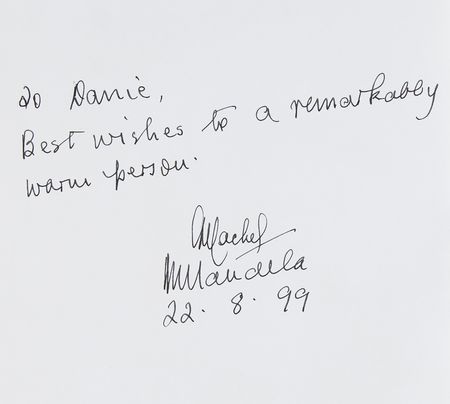 To Danie,
Best wishes to a remarkably
warm person.
GMachel
NMandela
22. 8. 99